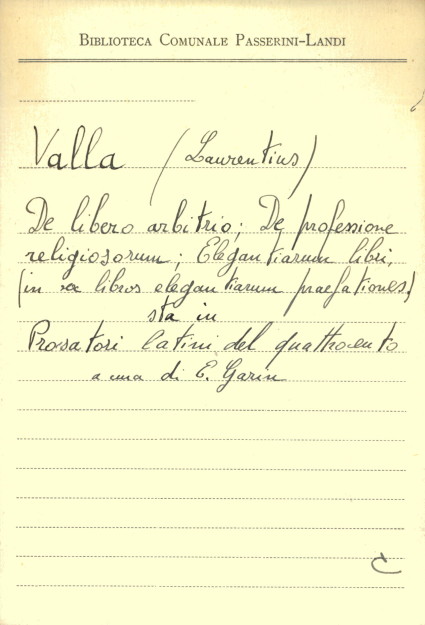 BIBLIOTECA COMUNALE PASSERINI-LANDI
Valla (Laurentius)
De libero arbitrio; De professione
religiosorum; Elegantiarum libri,
(in libros elegantiarum praefationes)
sta in
Prosatori latini del quattrocento
a cura di E. Garin
C